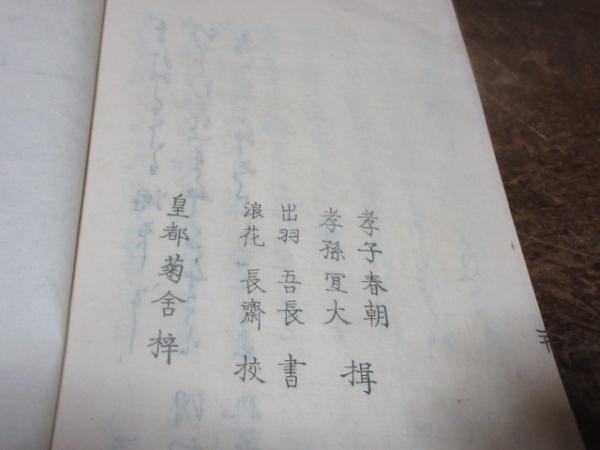 孝子春朝
孝孫宜大 揖
出羽 吾長 書
浪花 長齋 挍
皇都菊舎 梓